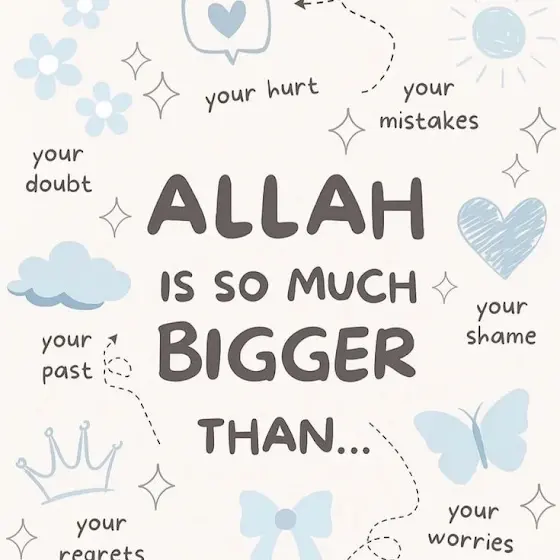 your hurt
your
mistakes
your
doubt
ALLAH
IS SO MUCH
BIGGER
THAN...
your
shame
your
past
your
worries
your
regrets